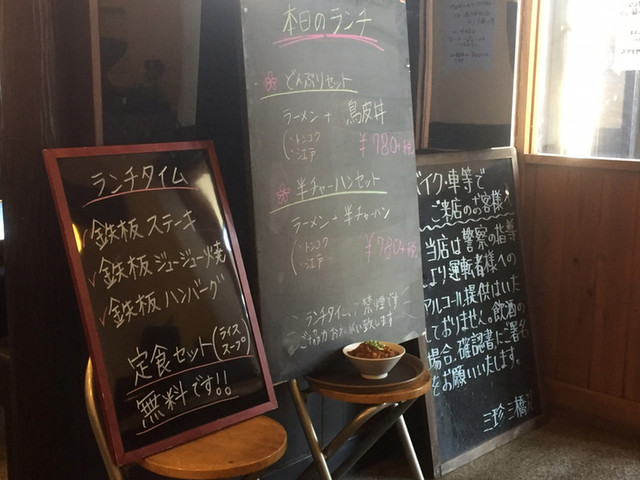 ランチタイム
✓鉄板 ステーキ
✓鉄板 ジュージュー焼
✓鉄板 ハンバーグ
定食セット(ライス
スープ)
無料です!!
本日のランチ
どんぶりセット
ラーメン + 鳥皮丼
(・トンコク
・江戸
¥780
半チャーハンセット
ラーメン + 半チャーハン
(・トンコク
・江戸
¥780
ランチタイム、禁煙です
ご協力お願い致します
バイク・車等で
ご来店のお客様へ
当店は警察の指導
により運転者様への
アルコール提供はいた
しておりません。飲酒の
場合、確認書に署名
をお願いいたします。
三珍 三橋